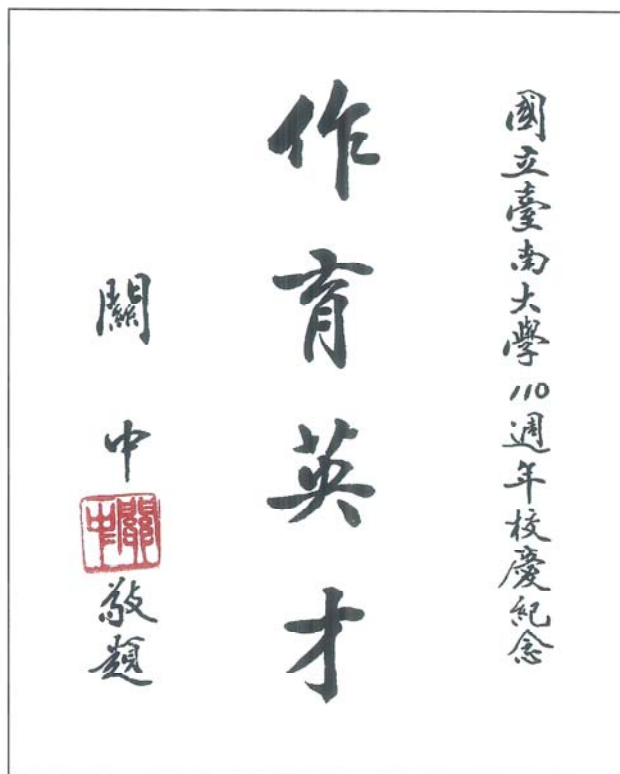 國立臺南大學110週年校慶紀念
作育英才
關中
關中
敬題